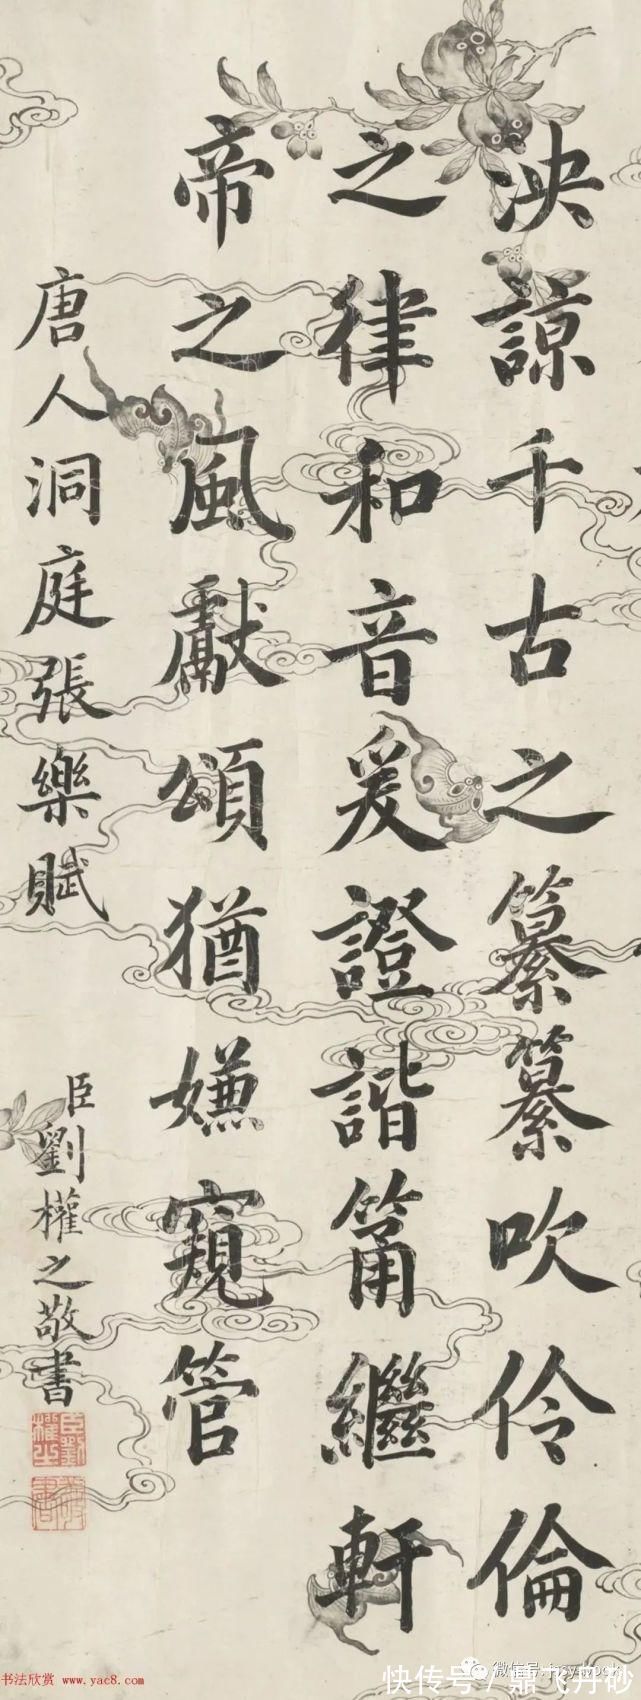 泱諒千古之纂纂吹伶倫
之律和音爰證諧箾繼軒
帝之風獻頌猶嫌窺管
唐人洞庭張樂賦
臣劉權之敬書
臣劉權之
敬書
书法欣赏 www.yac8.com
微信号:
快传号 / 鼎飞丹砂